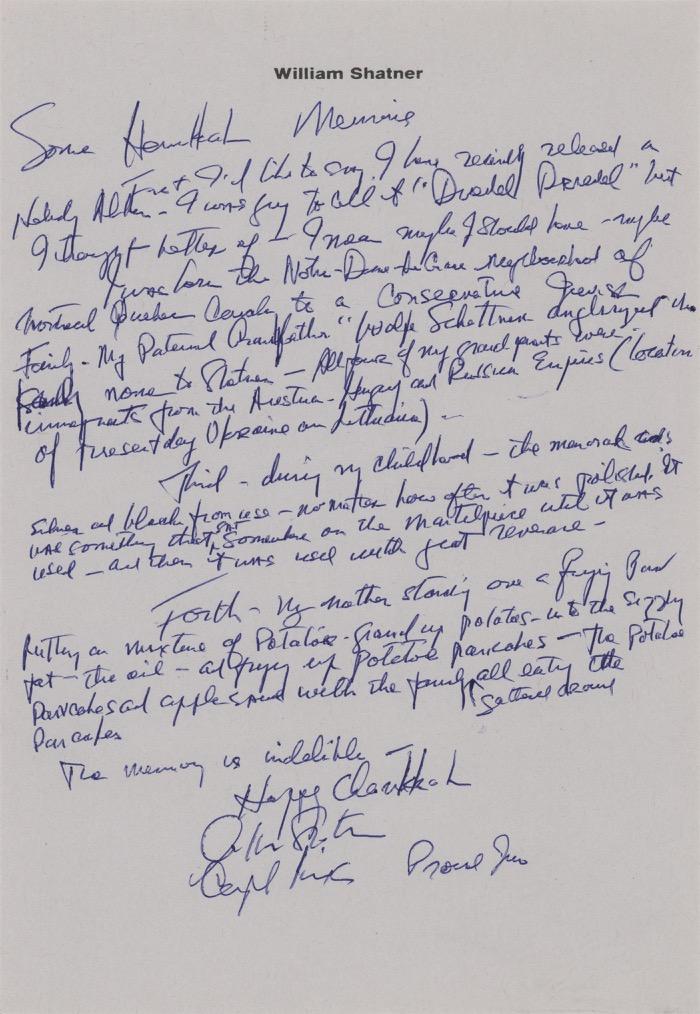 William Shatner
Some Hanukkah Memories
First I'd like to say I have recently released a
Holiday Album - I was going to call it "Dreidel Dreidel" but
I thought better of - I mean maybe I should have - maybe
I was born the Notre-Dame-de-Grace neighborhood of
Montreal Quebec Canada to a Conservative Jewish
Family - My Paternal Grandfather "Wolfe Schattner anglicized his
family name to Shatner - All four of my grandparents were
immigrants from the Austria-Hungary and Russian Empires (location
of present day Ukraine and Lithuania) -
Third - during my childhood - the menorah was
silver and black from use - no matter how often it was polished. It
was something that sat somewhere on the mantelpiece until it was
used - and then it was used with great reverence -
Forth - My mother standing over a frying pan
putting a mixture of Potatoe - ground up potatoes - into the sizzling
fat - the oil - and frying up potatoe pancakes - The Potatoe
Pancakes and applesauce with the family all eating the
gathered around
Pancakes
The memory is indelible -
Happy Chanukkah
William Shatner
Captain Kirk Proud Jew